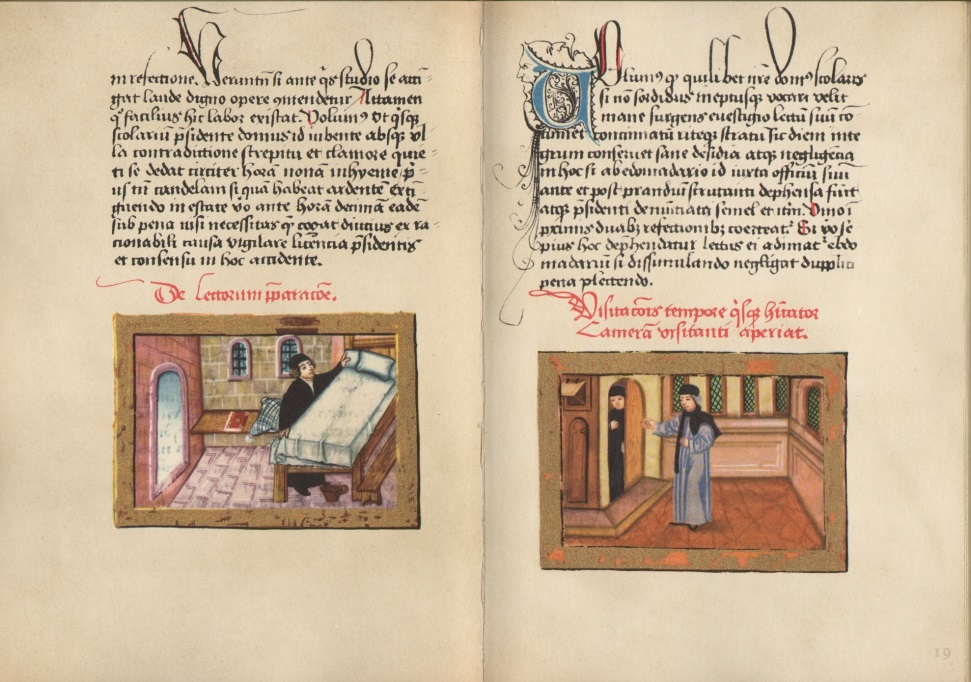 in refectione. Verunt̄n̄ si ante q̄s studio se acci⸗
gat laude digno opere ꝯmendetur Attamen
q° facilius hic labor existat. Volum⁹ vt q̄sq̄
scolariū p̄sidente domus id iubente absqꝫ vl
la contradictione strepitu et clamore quie⸗
ti se dedat circiter horā nonā in hyeme p̄⸗
us tn̄ candelam si quā habeat ardentē exti
guendo in estate v̊o ante horā decimā eadē
sub pena nisi necessitas q̄ cogat diucius ex ra⸗
cionabili causa vigilare licencia p̄sidentis
et consensu in hoc accidente.
De lectorum p̄paracōe.
Volum⁹ qꝫ quilibet nr̄e dom⁹ scolaris
si nō sordidus ineptusqꝫ vocari velit
mane surgens euestigio lectū suū co
continuatū riteqꝫ stratū sic diem inte
grum conseruet sane desidia atqꝫ negligēcia
in hoc si ab edomadario id iuxta officiū suū
ante et post prandiū scrutanti dephensa fūt
atqꝫ p̄sidenti denūciata semel et itm̄.
proximis duabꝫ refectionibꝫ coerceatʳ Si v̊o se
pius hoc dephendatur lectus ei adimatʳ ebdo
madarius si dissimulando negligat dupplici
pena plectendo.
Visitacōis tempore q̄sqꝫ hītator
Camerā visitanti aperiat.
19